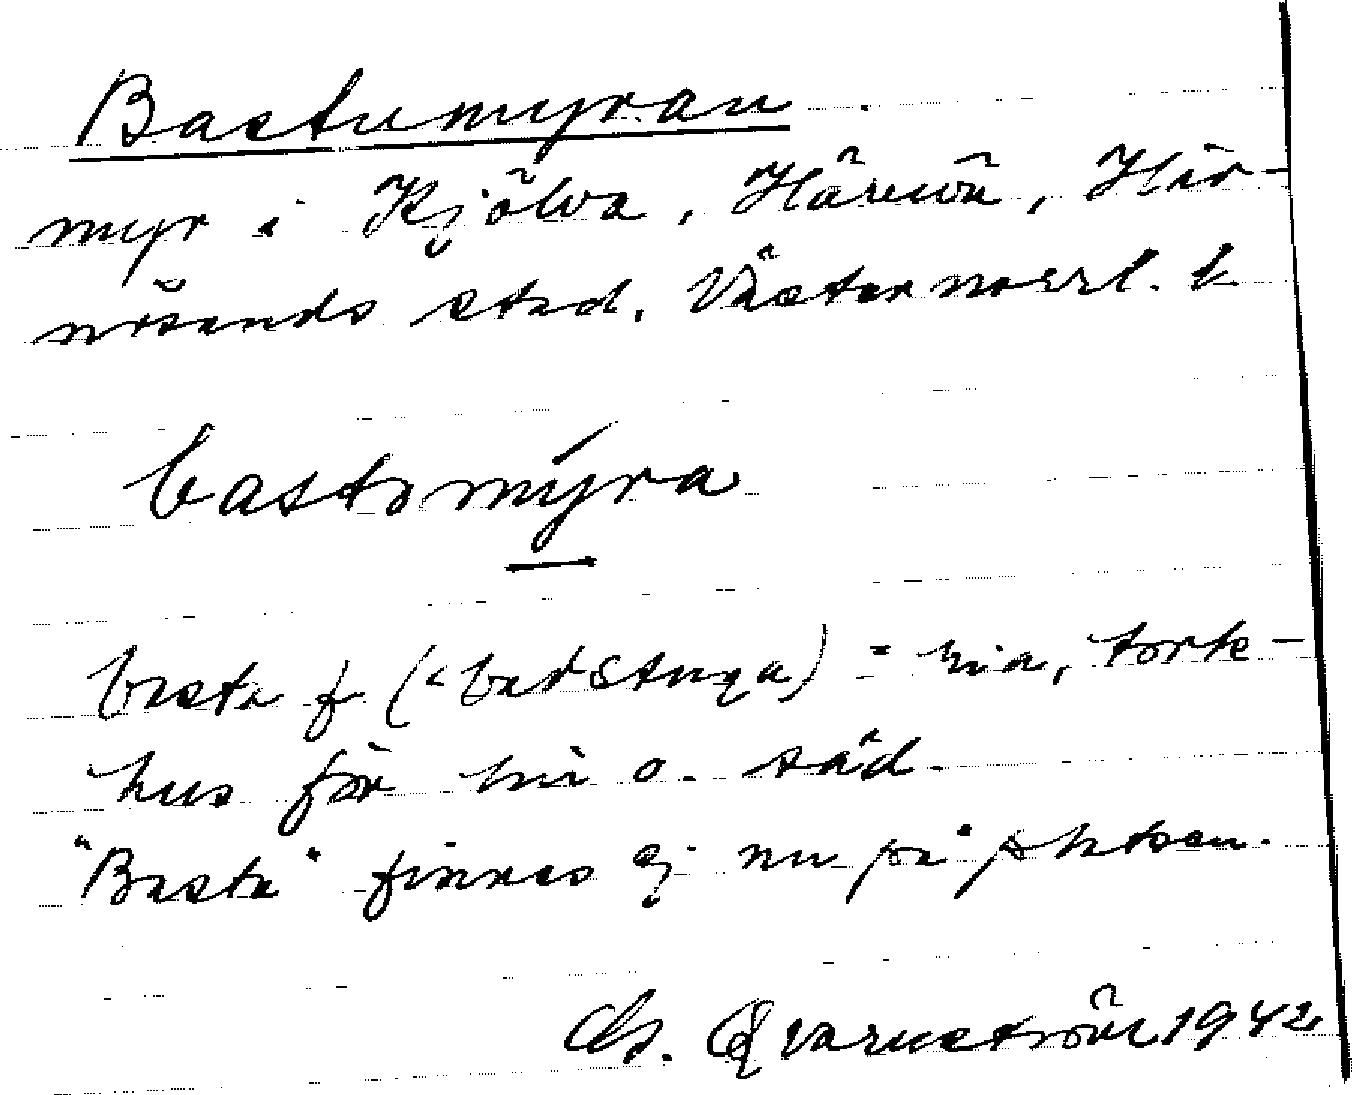 Bastumyran
myr i Kjölva, Härnön, Här-
nösands stad. Västernorrl. l.
bastomýra
basta f (< badstuga) = ria, tork-
hus för lin o. säd.
"Basta" finnes ej nu på platsen.
Qvarnström 1942